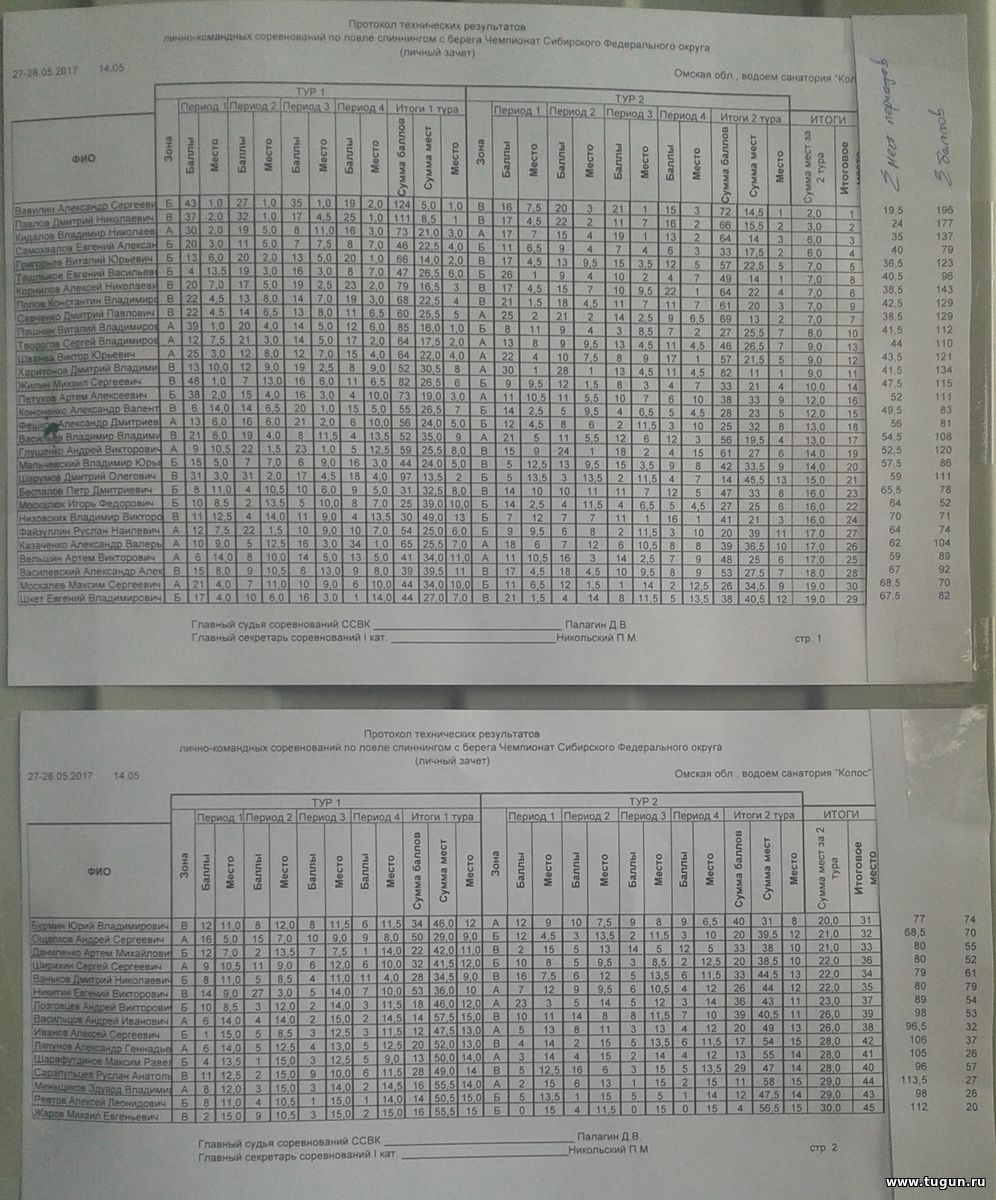 Протокол технических результатов
лично-командных соревнований по ловле спиннингом с берега Чемпионат Сибирского Федерального округа
(личный зачет)
27-28.05.2017 14.05 Омская обл., водоем санатория "Кол
ТУР 1 ТУР 2
Период 1 Период 2 Период 3 Период 4 Итоги 1 тура Период 1 Период 2 Период 3 Период 4 Итоги 2 тура ИТОГИ
ФИО Зона Баллы Место Баллы Место Баллы Место Баллы Место Сумма баллов Сумма мест Место Зона Баллы Место Баллы Место Баллы Место Баллы Место Сумма баллов Сумма мест Место Сумма мест за 2 тура Итоговое место Σ мест периодов Σ баллов
Вавилин Александр Сергееви Б 43 1,0 27 1,0 35 1,0 19 2,0 124 5,0 1,0 В 16 7,5 20 3 21 1 15 3 72 14,5 1 2,0 1 19,5 196
Павлов Дмитрий Николаевич В 37 2,0 32 1,0 17 4,5 25 1,0 111 8,5 1 В 17 4,5 22 2 11 7 16 2 66 15,5 2 3,0 2 24 177
Кидалов Владимир Николаев А 30 2,0 19 5,0 8 11,0 16 3,0 73 21,0 3,0 А 17 7 15 4 19 1 13 2 64 14 3 6,0 3 35 137
Самохвалов Евгений Алексан Б 20 3,0 11 5,0 7 7,5 8 7,0 46 22,5 4,0 Б 11 6,5 9 4 7 4 6 3 33 17,5 2 6,0 4 40 79
Григорьев Виталий Юрьевич Б 13 6,0 20 2,0 13 5,0 20 1,0 66 14,0 2,0 В 17 4,5 13 9,5 15 3,5 12 5 57 22,5 5 7,0 5 36,5 123
Ташлыков Евгений Васильев Б 4 13,5 19 3,0 16 3,0 8 7,0 47 26,5 6,0 Б 26 1 9 4 10 2 4 7 49 14 1 7,0 8 40,5 96
Корнилов Алексей Николаеви В 20 7,0 17 5,0 19 2,5 23 2,0 79 16,5 3 В 17 4,5 15 7 10 9,5 22 1 64 22 4 7,0 6 38,5 143
Попов Константин Владимирс В 22 4,5 13 8,0 14 7,0 19 3,0 68 22,5 4 В 21 1,5 18 4,5 11 7 11 7 61 20 3 7,0 9 42,5 129
Савченко Дмитрий Павлович В 22 4,5 14 6,5 13 8,0 11 6,5 60 25,5 5 А 25 2 21 2 14 2,5 9 6,5 69 13 2 7,0 7 38,5 129
Пашнин Виталий Владимиров А 39 1,0 20 4,0 14 5,0 12 6,0 85 16,0 1,0 Б 8 11 9 4 3 8,5 7 2 27 25,5 7 8,0 10 41,5 112
Творогов Сергей Владимиров А 12 7,5 21 3,0 14 5,0 17 2,0 64 17,5 2,0 А 13 8 9 9,5 13 4,5 11 4,5 46 26,5 7 9,0 13 44 110
Шванев Виктор Юрьевич А 25 3,0 12 8,0 12 7,0 15 4,0 64 22,0 4,0 А 22 4 10 7,5 8 9 17 1 57 21,5 5 9,0 12 43,5 121
Харитонов Дмитрий Владими В 13 10,0 12 9,0 19 2,5 8 9,0 52 30,5 8 А 30 1 28 1 13 4,5 11 4,5 82 11 1 9,0 11 41,5 134
Жилин Михаил Сергеевич В 48 1,0 7 13,0 16 6,0 11 6,5 82 26,5 6 Б 9 9,5 12 1,5 8 3 4 7 33 21 4 10,0 14 47,5 115
Петухов Артем Алексеевич Б 38 2,0 15 4,0 16 3,0 4 10,0 73 19,0 3,0 А 11 10,5 11 5,5 10 7 6 10 38 33 9 12,0 16 52 111
Кононенко Александр Валент В 6 14,0 14 6,5 20 1,0 15 5,0 55 26,5 7 Б 14 2,5 5 9,5 4 6,5 5 4,5 28 23 5 12,0 15 49,5 83
Александр Дмитриев А 13 6,0 16 6,0 21 2,0 6 10,0 56 24,0 5,0 Б 12 4,5 8 6 2 11,5 3 10 25 32 8 13,0 18 56 81
Владимир Владими В 21 6,0 19 4,0 8 11,5 4 13,5 52 35,0 9 А 21 5 11 5,5 12 6 12 3 56 19,5 4 13,0 17 54,5 108
Глущенко Андрей Викторович А 9 10,5 22 1,5 23 1,0 5 12,5 59 25,5 8,0 В 15 9 24 1 18 2 4 15 61 27 6 14,0 19 52,5 120
Мальчевский Владимир Юрье Б 15 5,0 7 7,0 6 9,0 16 3,0 44 24,0 5,0 В 5 12,5 13 9,5 15 3,5 9 8 42 33,5 9 14,0 20 57,5 86
Шарумов Дмитрий Олегович В 31 3,0 31 2,0 17 4,5 18 4,0 97 13,5 2 Б 5 13,5 3 13,5 2 11,5 4 7 14 45,5 13 15,0 21 59 111
Беспалов Петр Дмитриевич Б 8 11,0 4 10,5 10 6,0 9 5,0 31 32,5 8,0 В 14 10 10 11 11 7 12 5 47 33 8 16,0 23 65,5 78
Москалюк Игорь Федорович Б 10 8,5 2 13,5 5 10,0 8 7,0 25 39,0 10,0 Б 14 2,5 4 11,5 4 6,5 5 4,5 27 25 6 16,0 22 64 52
Низовских Владимир Викторо В 11 12,5 4 14,0 11 9,0 4 13,5 30 49,0 13 Б 7 12 7 7 11 1 16 1 41 21 3 16,0 24 70 71
Файзуллин Руслан Наилевич А 12 7,5 22 1,5 10 9,0 10 7,0 54 25,0 6,0 Б 9 9,5 6 8 2 11,5 3 10 20 39 11 17,0 27 64 74
Казаченко Александр Валерь А 10 9,0 5 12,5 16 3,0 34 1,0 65 25,5 7,0 А 18 6 7 12 6 10,5 8 8 39 36,5 10 17,0 26 62 104
Вельшин Артем Викторович А 6 14,0 8 10,0 14 5,0 13 5,0 41 34,0 11,0 А 11 10,5 16 3 14 2,5 7 9 48 25 6 17,0 25 59 89
Василевский Александр Алек В 15 8,0 9 10,5 6 13,0 9 8,0 39 39,5 11 В 17 4,5 18 4,5 10 9,5 8 9 53 27,5 7 18,0 28 67 92
Москалев Максим Сергеевич А 21 4,0 7 11,0 10 9,0 6 10,0 44 34,0 10,0 Б 11 6,5 12 1,5 1 14 2 12,5 26 34,5 9 19,0 30 68,5 70
Шкет Евгений Владимирович Б 17 4,0 10 6,0 16 3,0 1 14,0 44 27,0 7,0 В 21 1,5 4 14 8 11,5 5 13,5 38 40,5 12 19,0 29 67,5 82
Главный судья соревнований ССВК Палагин Д.В.
Главный секретарь соревнований I кат. Никольский П.М. стр. 1
Протокол технических результатов
лично-командных соревнований по ловле спиннингом с берега Чемпионат Сибирского Федерального округа
(личный зачет)
27-28.05.2017 14.05 Омская обл., водоем санатория "Колос"
ТУР 1 ТУР 2
Период 1 Период 2 Период 3 Период 4 Итоги 1 тура Период 1 Период 2 Период 3 Период 4 Итоги 2 тура ИТОГИ
ФИО Зона Баллы Место Баллы Место Баллы Место Баллы Место Сумма баллов Сумма мест Место Зона Баллы Место Баллы Место Баллы Место Баллы Место Сумма баллов Сумма мест Место Сумма мест за 2 тура Итоговое место
Бурмин Юрий Владимирович В 12 11,0 8 12,0 8 11,5 6 11,5 34 46,0 12 А 12 9 10 7,5 9 8 9 6,5 40 31 8 20,0 31 77 74
Ощепков Андрей Сергеевич А 16 5,0 15 7,0 10 9,0 9 8,0 50 29,0 9,0 Б 12 4,5 3 13,5 2 11,5 3 10 20 39,5 12 21,0 32 68,5 70
Даниленко Артем Михайлови Б 12 7,0 2 13,5 7 7,5 1 14,0 22 42,0 11,0 В 2 15 5 13 14 5 12 5 33 38 10 21,0 33 80 55
Ширихин Сергей Сергеевич А 9 10,5 11 9,0 6 12,0 6 10,0 32 41,5 12,0 Б 10 8 5 9,5 3 8,5 2 12,5 20 38,5 10 22,0 36 80 52
Ваньков Дмитрий Николаевич Б 8 11,0 5 8,5 4 11,0 11 4,0 28 34,5 9,0 В 16 7,5 6 12 5 13,5 6 11,5 33 44,5 13 22,0 34 79 61
Никитин Евгений Викторович В 14 9,0 27 3,0 5 14,0 7 10,0 53 36,0 10 А 7 12 9 9,5 6 10,5 4 12 26 44 12 22,0 35 80 79
Лозговцев Андрей Викторови Б 10 8,5 3 12,0 2 14,0 3 11,5 18 46,0 12,0 А 23 3 5 14 5 12 3 14 36 43 11 23,0 37 89 54
Васильцов Андрей Иванович А 6 14,0 4 14,0 2 15,0 2 14,5 14 57,5 15,0 В 10 11 14 8 8 11,5 7 10 39 40,5 11 26,0 39 98 53
Иванов Алексей Сергеевич Б 1 15,0 5 8,5 3 12,5 3 11,5 12 47,5 13,0 А 5 13 8 11 3 13 4 12 20 49 13 26,0 38 96,5 32
Ляпунов Александр Геннадье А 6 14,0 5 12,5 4 13,0 5 12,5 20 52,0 13,0 В 4 14 2 15 5 13,5 6 11,5 17 54 15 28,0 42 106 37
Шарафутдинов Максим Равел Б 4 13,5 1 15,0 3 12,5 5 9,0 13 50,0 14,0 А 3 14 4 15 2 14 4 12 13 55 14 28,0 41 105 26
Сарапульцев Руслан Анатоль В 11 12,5 2 15,0 9 10,0 6 11,5 28 49,0 14 В 5 12,5 16 6 3 15 5 13,5 29 47 14 28,0 40 96 57
Меньщиков Эдуард Владимир А 8 12,0 3 15,0 3 14,0 2 14,5 16 55,5 14,0 А 2 15 6 13 1 15 2 15 11 58 15 29,0 44 113,5 27
Ревтов Алексей Леонидович Б 8 11,0 4 10,5 1 15,0 1 14,0 14 50,5 15,0 Б 5 13,5 1 15 5 5 1 14 12 47,5 14 29,0 43 98 26
Жаров Михаил Евгеньевич В 2 15,0 9 10,5 3 15,0 2 15,0 16 55,5 15 Б 0 15 4 11,5 0 15 0 15 4 56,5 15 30,0 45 112 20
Главный судья соревнований ССВК Палагин Д.В.
Главный секретарь соревнований I кат. Никольский П.М стр. 2
www.tugun.ru